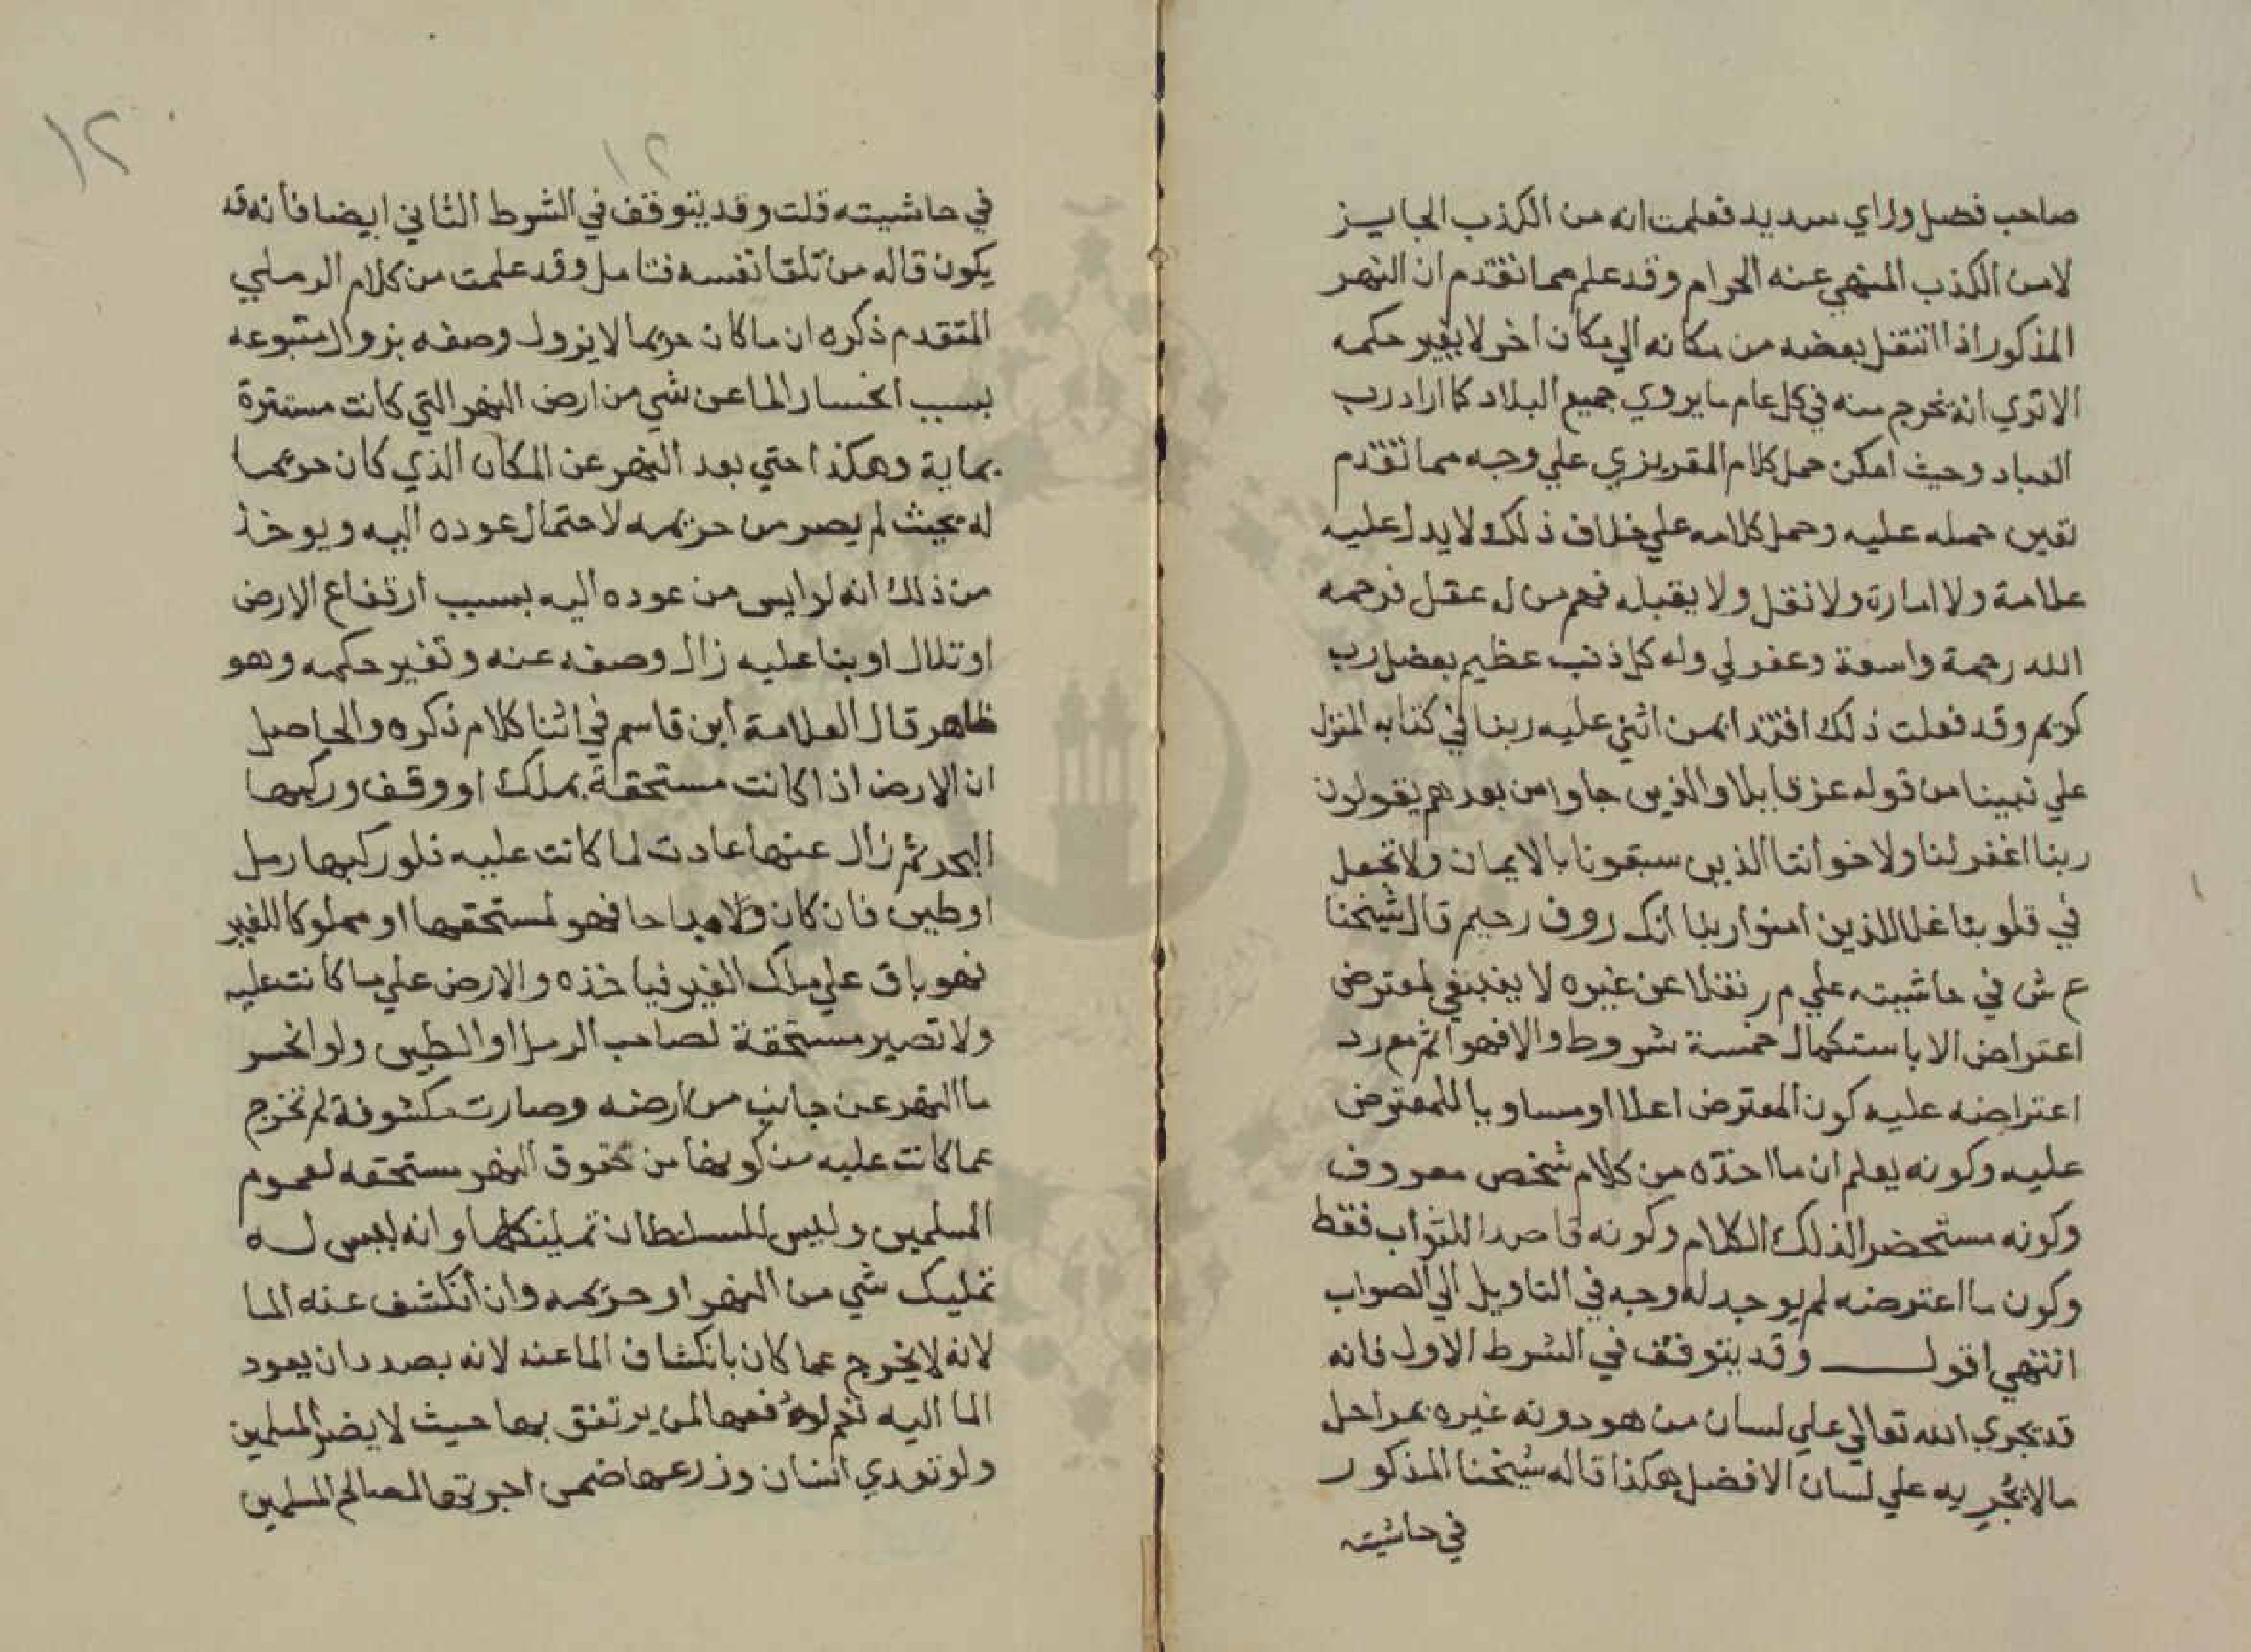 صاحب فضل وراي سديد فعلمت انه من الكذب الجايز
لامن الكذب المنهي عنه الحرام وقد علم مما تقدم ان النهر
المذكور اذا انتقل بعضه من مكانه الي مكان اخر لا يغير حكمه
الا تري انه يخرج منه في كل عام ما يروي جميع البلاد كما اراد رب
العباد وحيث امكن حمل كلام المقريزي علي وجه مما تقدم
تعين حمله عليه وحمل كلامه علي خلاف ذلك لا يدل عليه
علامة ولا امارة ولا نقل ولا يقبله فهم من له عقل فرحمه
الله رحمة واسعة وغفر لي وله كل ذنب عظيم بفضل رب
كريم وقد فعلت ذلك اقتدا بمن اثني عليه ربنا في كتابه المنزل
علي نبينا من قوله عز قايلا والذين جاوا من بعدهم يقولون
ربنا اغفر لنا ولاخواننا الذين سبقونا بالايمان ولا تجعل
في قلوبنا غلا للذين امنوا ربنا انك روف رحيم قال شيخنا
ع ش في حاشيته علي م ر نقلا عن غيره لا ينبغي لمعترض
اعتراض الا باستكمال خمسة شروط والا فهو اثم مع رد
اعتراضه عليه كون المعترض اعلا او مساويا للمعترض
عليه وكونه يعلم ان ما اخذه من كلام شخص معروف
وكونه مستحضرا لذلك الكلام وكونه قاصدا للثواب فقط
وكون ما اعترضه لم يوجد له وجه في التاويل الي الصواب
انتهي اقول وقد يتوقف في الشرط الاول فانه
قد يجري الله تعالي علي لسان من هو دونه غيره بمراحل
مالا يجريه علي لسان الافضل هكذا قاله شيخنا المذكور
في حاشيته
١٢
١٢
في حاشيته قلت وقد يتوقف في الشرط الثاني ايضا فانه قد
يكون قاله من تلقا نفسه فتامل وقد علمت من كلام الرملي
المتقدم ذكره ان ما كان حريما لا يزول وصفه بزوال متبوعه
بسبب انحسار الما عن شي من ارض النهر التي كانت مستترة
بمايه وهكذا حتي بعد النهر عن المكان الذي كان حريما
له بحيث لم يصر من حريمه لاحتمال عوده اليه ويوخذ
من ذلك انه لو ايس من عوده اليه بسبب ارتفاع الارض
او تلال او بنا عليه زال وصفه عنه وتغير حكمه وهو
ظاهر قال العلامة ابن قاسم في اثنا كلام ذكره والحاصل
ان الارض اذا كانت مستحقة بملك او وقف وركبها
البحر ثم زال عنها عادت لما كانت عليه فلو ركبها رمل
او طين فان كان مباحا فهو لمستحقها او مملوكا للغير
فهو باق علي ملك الغير فياخذه والارض علي ما كانت عليه
ولا تصير مستحقة لصاحب الرمل او الطين ولو انحسر
ما النهر عن جانب من ارضه وصارت مكشوفة لم تخرج
عما كانت عليه من كونها من حقوق النهر مستحقه لعموم
المسلمين وليس للسلطان تمليكها وانه ليس له
تمليك شي من النهر او حريمه وان انكشف عنه الما
لانه لا يخرج عما كان بانكشاف الما عنه لانه بصدد ان يعود
الما اليه نعم له دفعها لمن يرتفق بها حيث لا يضر المسلمين
ولو تعدي انسان وزرعها ضمن اجرتها لمصالح المسلمين